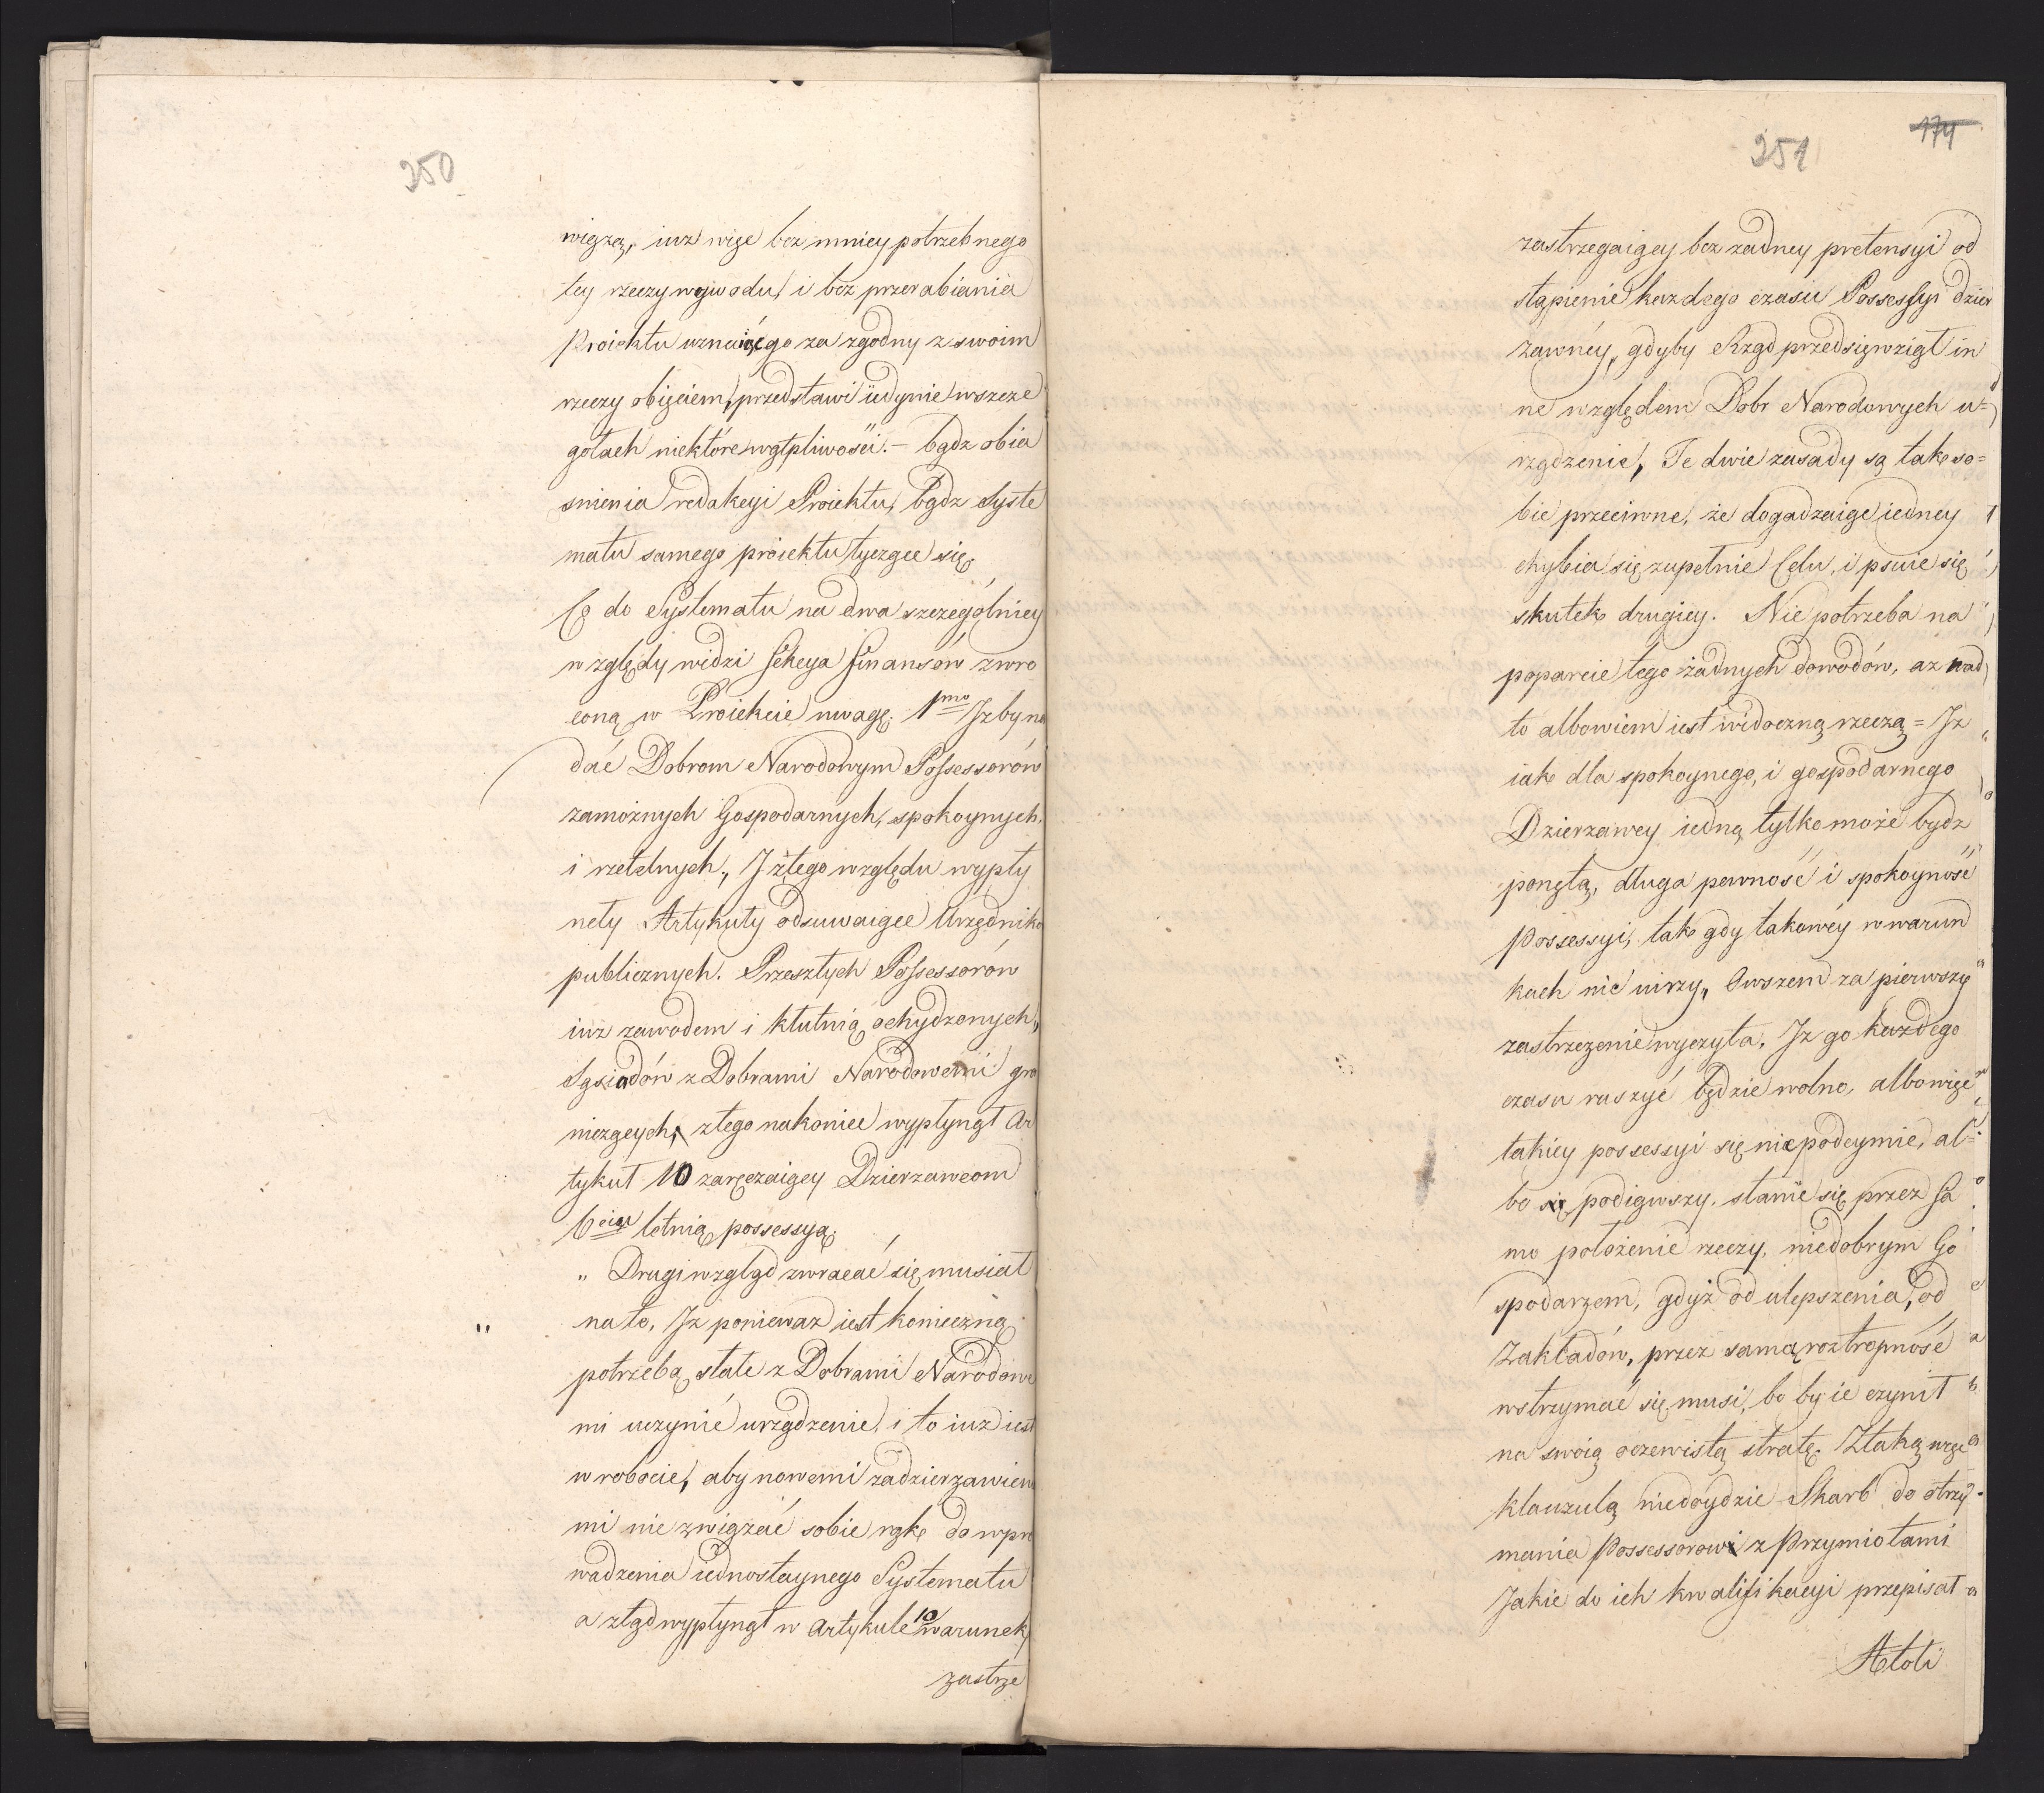 350
wiążą, iuż więc bez mniey potrzebnego
tey rzeczy wywodu, i bez przerabiania
Proiektu uznaiąc go za zgodny z swoim
rzeczy obięciem, przedstawi iedynie w szcze
gołach niektóre wątpliwości. – bądz obia
snienia redakcyi Proiektu, bądz Syste
matu samego proiektu tyczące się.
Co do Systematu na dwa szczegolniey
względy widzi Sekcya finansów zwro
coną w Proiekcie uwagę. 1mo Jżby na
dać Dobrom Narodowym Possessorów
zamożnych Gospodarnych, spokoynych,
i rzetelnych, J z tego względu wypły
neły Artykuły odsuwaiące Urzędnikó
publicznych. Przeszłych Possessorów
iuż zawodem i kłutnią ochydzonych,
Sąsiadów z Dobrami Narodowemi gra
niczących, z tego nakoniec wypłynął Ar
tykuł 10 zaręczaiący Dzierzawcom
6cio letnią possessyą.
„ Drugi wzgląd zwracać się musiał
na to, Jż ponieważ iest konieczną
potrzebą stałe z Dobrami Narodowe
mi uczynić urządzenie, i to iuż iest
w robocie, aby nowemi zadzierzawien
mi nie związać sobie rąk do wpro
wadzenia iednostaynego Systematu
a ztąd wypłynął w Artykule 10 warunek
zastrze
174
351
zastrzegaiący bez żadney pretensyi od
stąpienie każdego czasu Possessyi dzier
żawney, gdyby Rząd przedsięwziął in
ne względem Dobr Narodowych u=
rządzenie, Te dwie zasady są tak so=
bie przeciwne, że dogadzaiąc iedney
chybia się zupełnie Celu, i psuie się
skutek drugiey. Nie potrzeba na
poparcie tego żadnych dowodów, aż nad
to albowiem iest widoczną rzeczą = Jż
iak dla spokoynego, i gospodarnego
Dzierzawcy iedną tylko może bydz
ponętą, długa pewność i spokoyność
Possessyi, tak gdy takowéy w warun
kach nie uirzy, Owszem za pierwsze
zastrzeżenie wyczyta, Jż go każdego
czasu ruszyć będzie wolno, albo więc
takiey possessyi się nie podeymie, al=
bo się podiąwszy, stanie się przez sa
mo położenie rzeczy, niedobrym Go
spodarzem, gdyż od ulepszenia, od
Zakładów, przez samą roztropność
wstrzymać się musi, bo by ie czynił
na swoią oczewistą stratę. Z taką więc
klauzulą niedoydzie Skarb do otrzy
mania Possessorow z Przymiotami
Jakie do ich kwalifikacyi przepisał
A toli